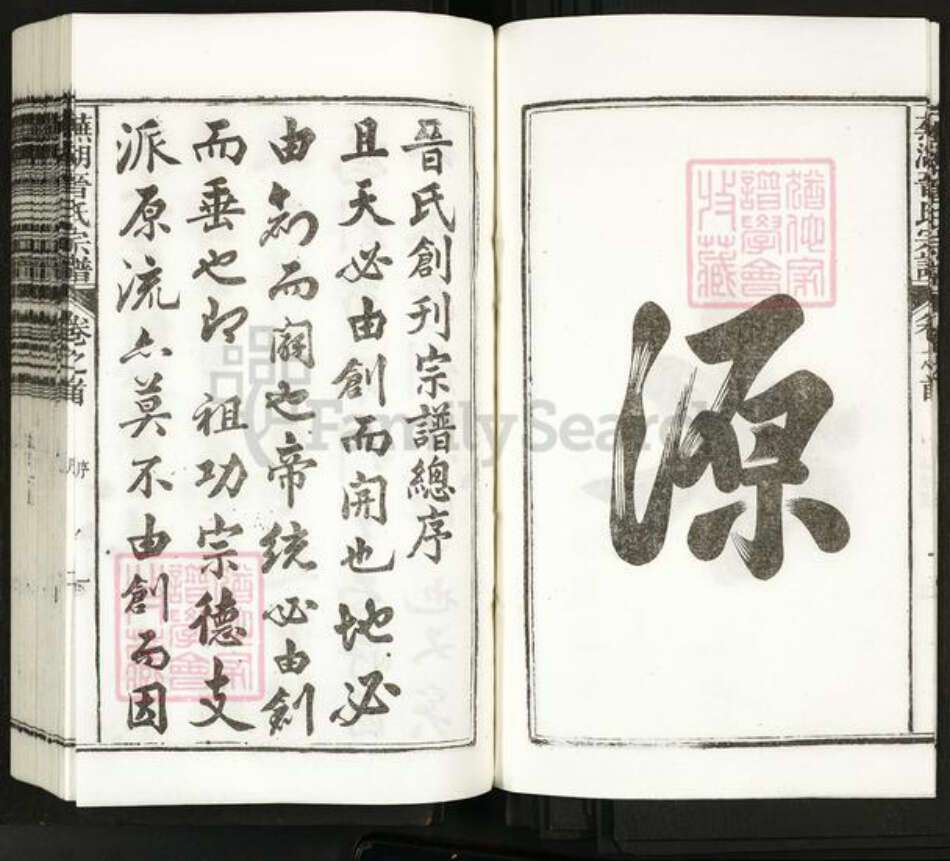 源
晉氏創刊宗譜總序
且天必由創而開也地必
由創而闢也帝統必由創
而垂也即祖功宗德支
派原流亦莫不由創而因
蕪湖晉氏宗譜 卷之首
蕪湖晉氏宗譜 卷之首 序
譜學會
收藏
FamilySearch